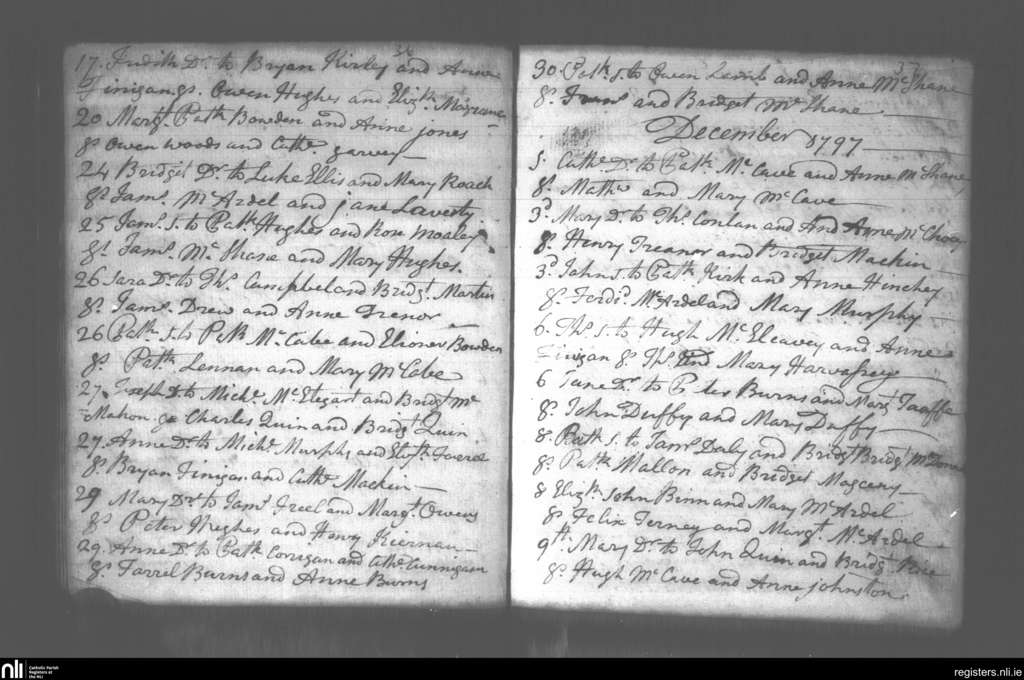 36
17. Judith Dr. to Bryan Kirley and Anne
Finigan gs. Owen Hughes and Elizth.
20 Margt. Patk. Bowden and Anne Jones
gs Owen Woods and Cathe. Garvey
24 Bridget Dr. to Luke Ellis and Mary Roach
gs. Jams. McArdel and Jane Laverty
25 Jams. S. to Patk. Hughes and Rose
gs. Jams. Mc Shane and Mary Hughes.
26 Sara Dr. to Ths. Campbel and Bridgt. Martin
gs. Jams. Drew and Anne Trenor
26 Patk. S. to Patk Mc Cabe and Elioner Bowden
gs. Patk. Lennan and Mary McCabe
27. Joseph D. to Michl. Mc and Bridgt Mc
Mahon. gs Charles Quin and Bridgt Quin
27. Anne Dr. to Michl. Murphy and
gs. Bryan Finigan and Cathe Mackin
29 Mary Dr. to Jams. Freel and Margt. Owens
gs Peter Hughes and Henry Kiernan
29. Anne Dr. to Patk Corrigan and Cathe Cunnigam
gs. Farrel Burns and Anne Burns
37
30. Patk. S. to Owen Lamb and Anne McShane
gs. Frans and Bridget Mc Shane
December 1797
5. Cathe Dr. to Patk. Mc Cave and Anne McShane
gs. Mathw and Mary McCave
3d. Mary Dr to Ths. Conlan and And Anne
gs. Henry Treanor and Bridget Mackin
3d. John S. to Patk Kirk and Anne Hinchey
gs. Ferdd. McArdel and Mary Murphy
6. Ths. S. to Hugh Mc Eleavey and Anne
Finigan gs. Ths. and Mary
6 Jane Dr. to Peter Burns and Margt Taaffe
gs. John Duffy and Mary Duffy
8. Patk S. to Jams Daly and Bridgt Bridgt
gs. Patk Mallon and Bridget
8 Elizth. John Binn and Mary McArdel
gs Felix Terney and Margt. McArdel
9th. Mary Dr. to John Quin and Bridgt Rice
gs. Hugh McCave and Anne Johnston.
nli
Catholic Parish
Registers at
the NLI
registers.nli.ie